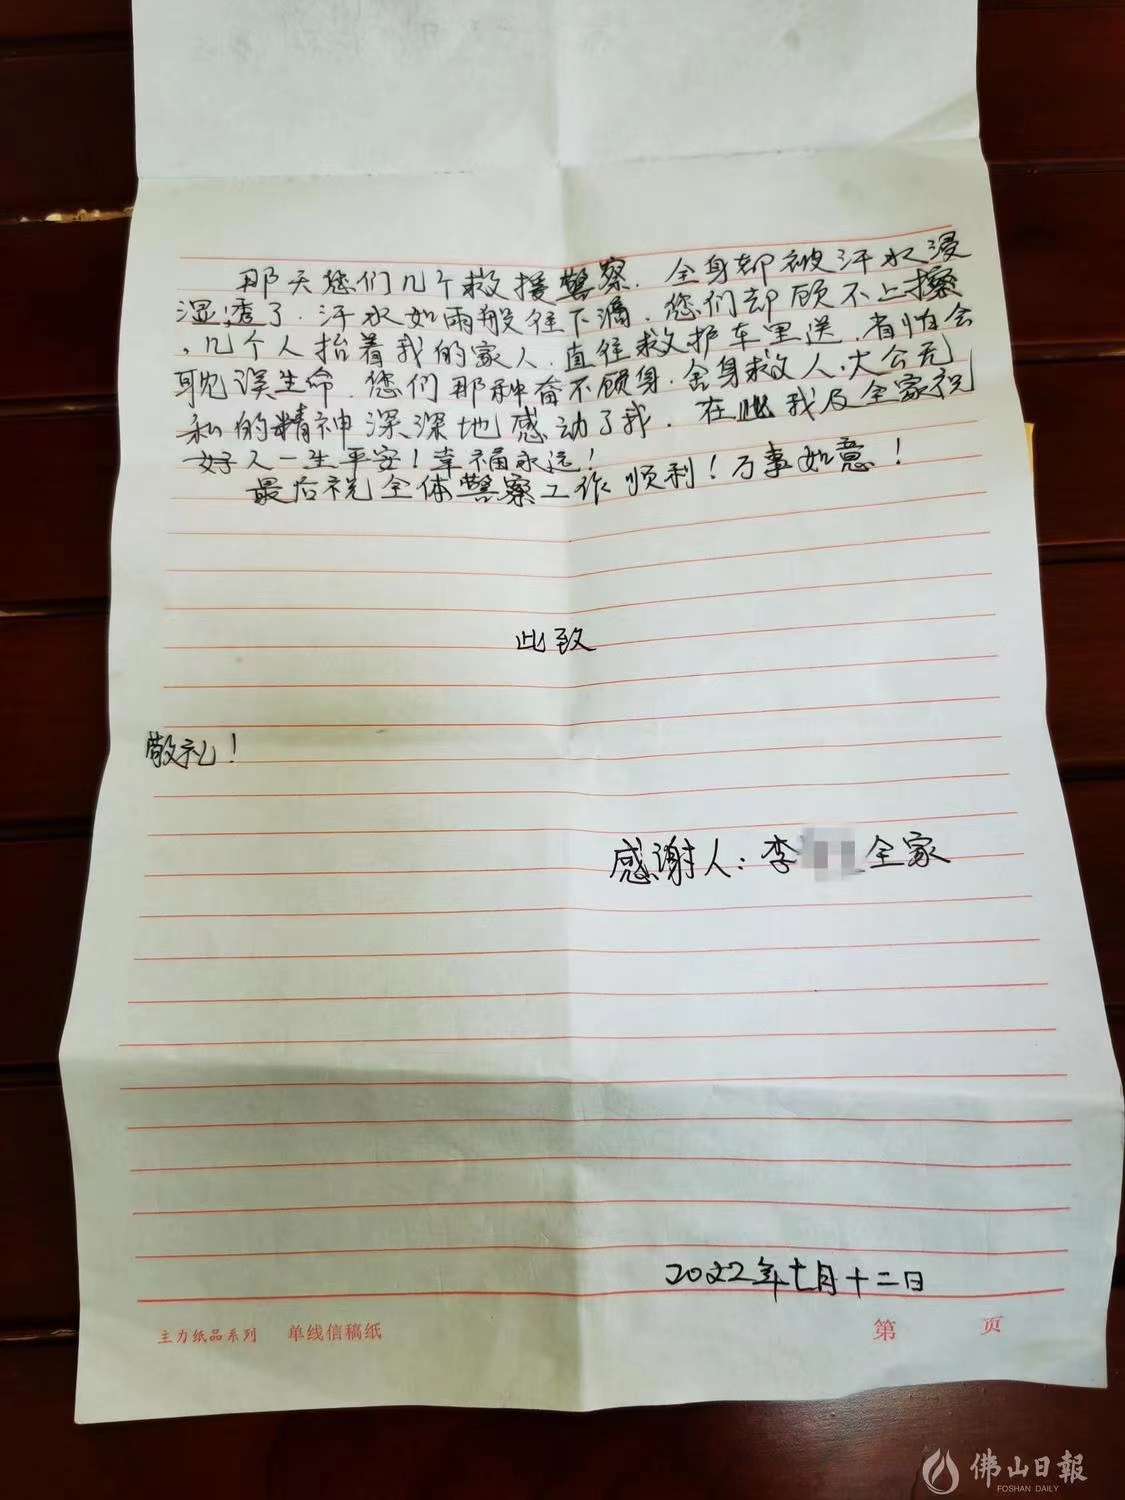 那天您们几个救援警察.全身都被汗水浸
湿透了.汗水如雨般往下滴.您们却顾不上擦
,几个人抬着我的家人.直往救护车里送.省怕会
耽误生命.您们那种奋不顾身.舍身救人.大公无
私的精神深深地感动了我.在此我及全家祝
好人一生平安!幸福永远!
最后祝全体警察工作顺利!万事如意!
此致
敬礼!
感谢人:李 全家
2022年七月十二日
主力纸品系列 单线信稿纸 第 页
佛山日報
FOSHAN DAILY